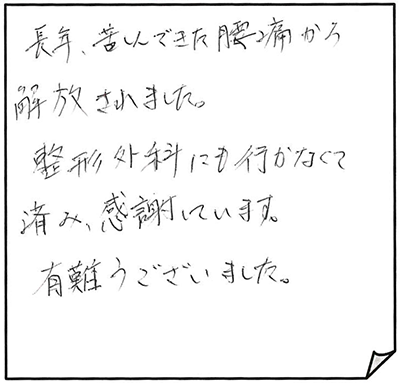 長年、苦しんできた腰痛から
解放されました。
整形外科にも行かなくて
済み、感謝しています。
有難うございました。